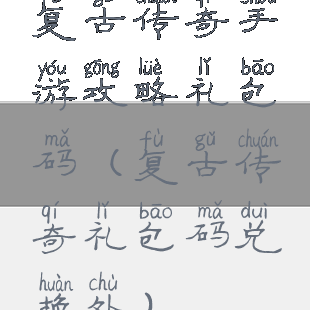 复古传奇手
yóu gōng lüè lǐ bāo
游攻略礼包
mǎ fù gǔ chuán
码（复古传
qí lǐ bāo mǎ duì
奇礼包码兑
huàn chù
换处）